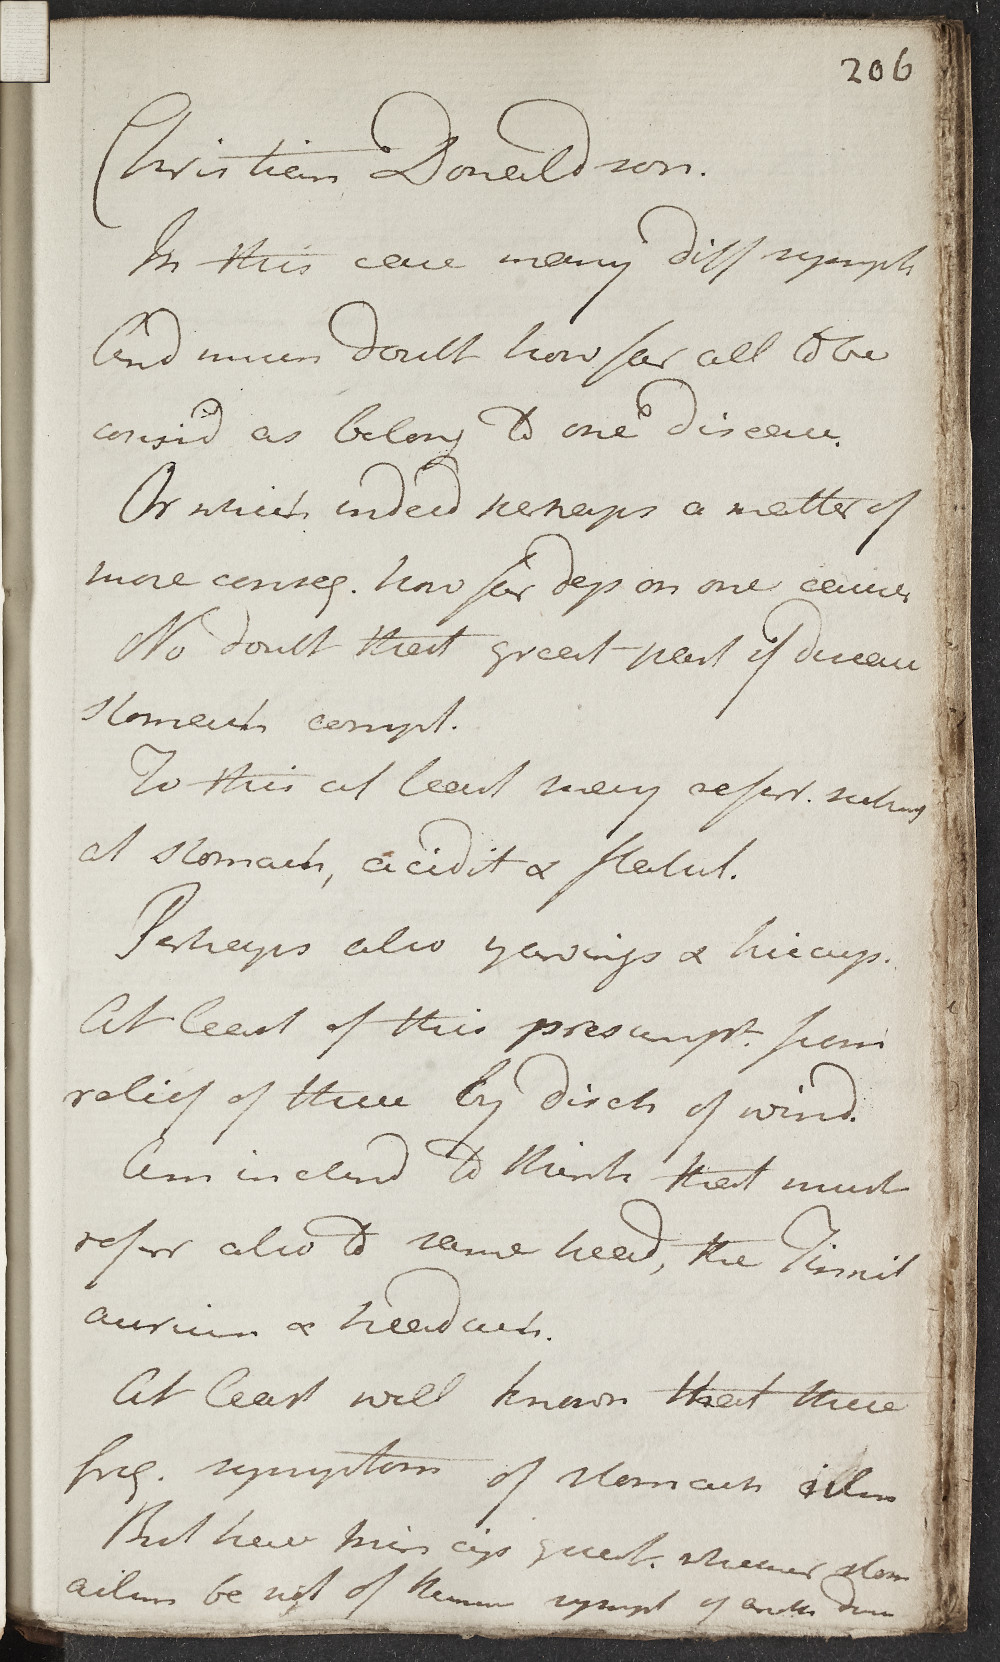 206
Christian Donaldson.
In this case many diff symph
And much doubt how far all to be
consid as belong to one disease.
Or which indeed perhaps a matter of
more conseq. how far dep on one cause
No doubt that great part of disease
stomach compt.
To this at least may referr.
at stomach, acidit & flatul.
Perhaps also yawnings & hiccup.
At least of this presumpt. from
relief of these by disch of wind.
Am inclind to think that must
referr also to same head, the Tinnit
aurium & headach.
At least well known that these
freq. symptom of stomach ailm
But here quest. whether stom
ailm be not of symp of anoth